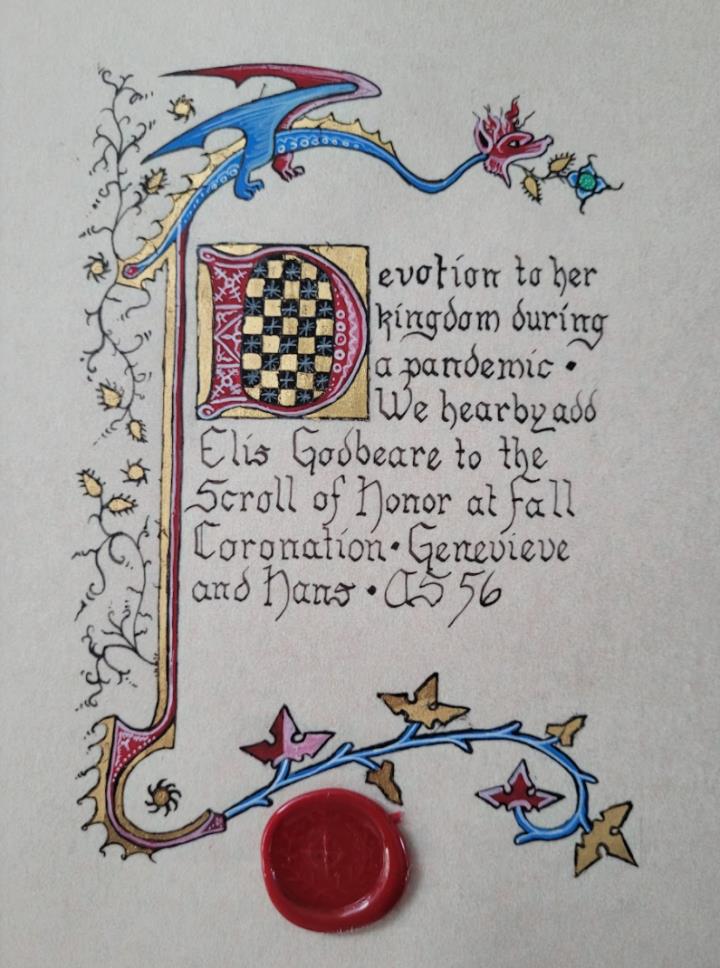 Devotion to her
kingdom during
a pandemic •
We hearby add
Elis Godbeare to the
Scroll of Honor at fall
Coronation • Genevieve
and Hans • AS 56